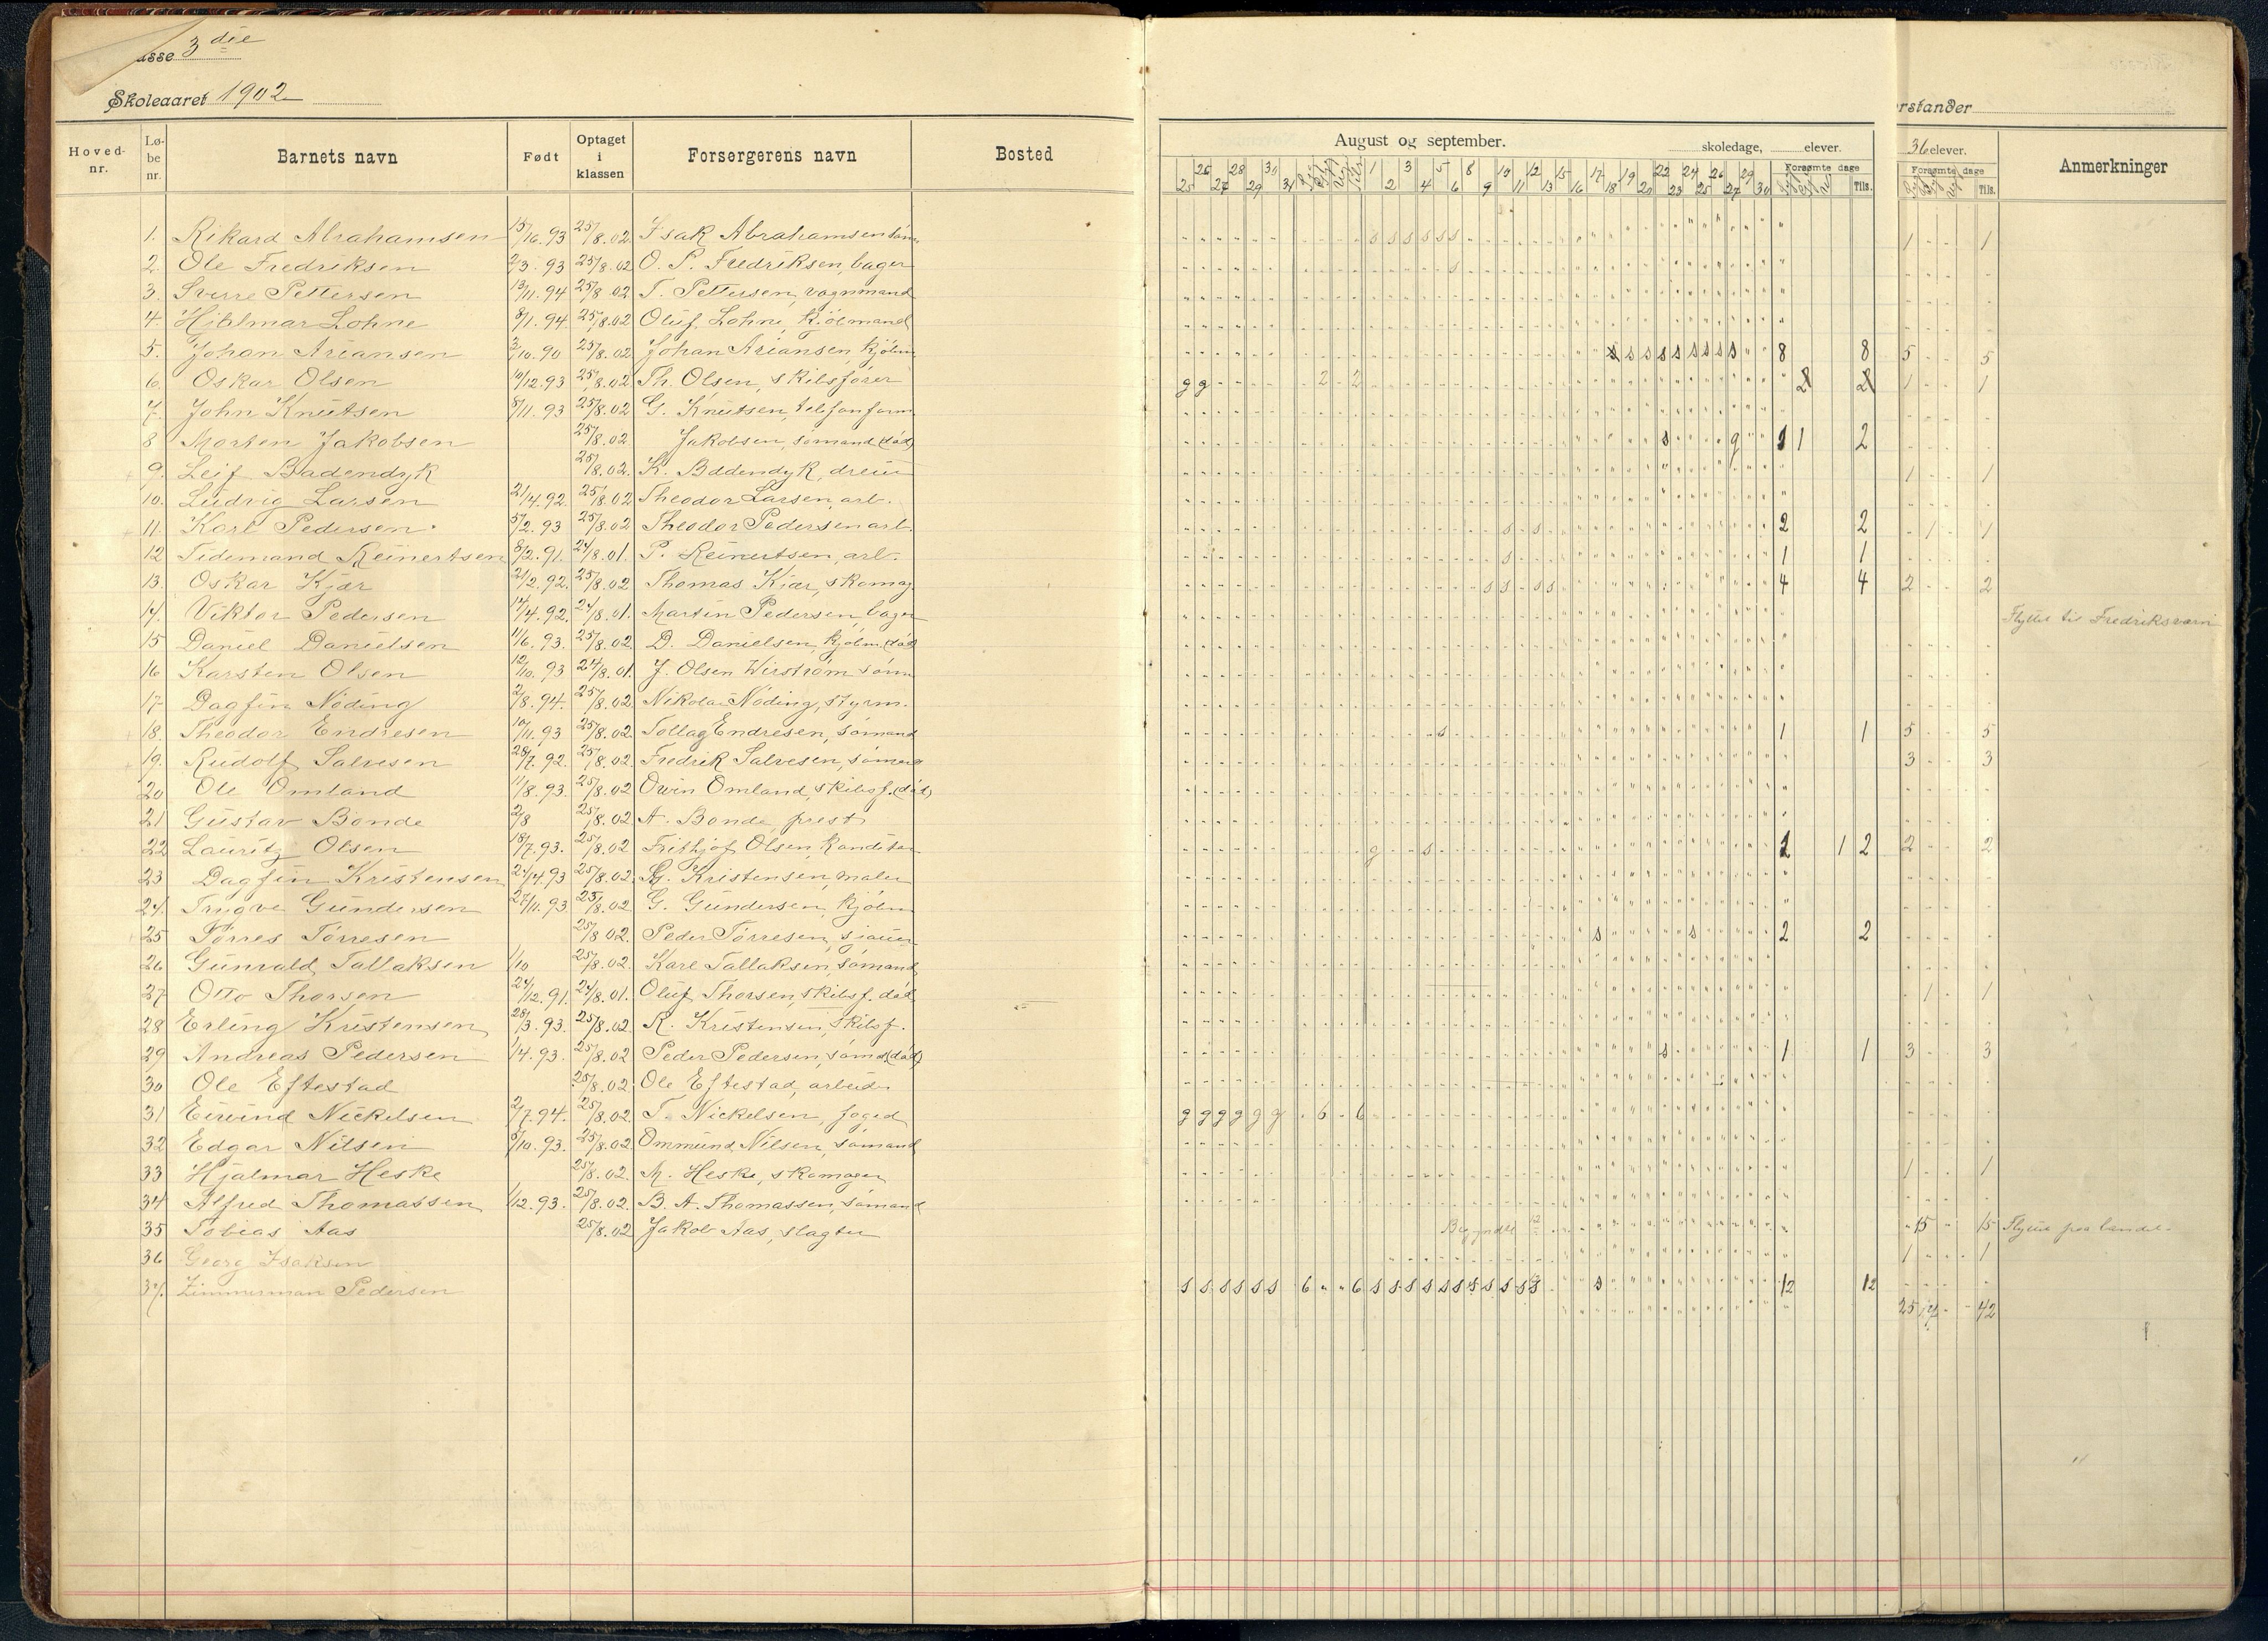 asse 3 die
Skoleaaret 1902
Hoved-nr. Lø-be nr. Barnets navn Født Optaget i klassen Forsørgerens navn Bosted
1. Rikard Abrahamsen 15/10.93 25/8.02. Isak Abrahamsen søm
2. Ole Fredriksen 2/3.93 25/8.02 O. P. Fredriksen, bager
3. Sverre Pettersen 13/11.94 25/8.02. T. Pettersen, vognmand
4. Hjalmar Lohne 8/1.94 25/8.02 Oluf Lohne, kjølmand
5. Johan Ariansen 2/10.90 25/8.02. Johan Ariansen, kjølm
6. Oskar Olsen 10/12.93 25/8.02 Th. Olsen, skibsfører
7. John Knutsen 8/11.93 25/8.02. G. Knutsen, telefonform
8 Morten Jakobsen 25/8.02. Jakobsen, sømand (død)
9. Leif Badendyk 25/8.02. K. Baddendyk, dreier
10. Ludvig Larsen 21/4.92. 25/8.02 Theodor Larsen, arb.
11. Karl Pedersen 5/2.93 25/8.02 Theodor Pedersen arb.
12 Tidemand Reinertsen 8/2.91. 24/8.01. P. Reinertsen, arb.
13. Oskar Kjær 21/2.92. 25/8.02 Thomas Kiær, skomag.
14. Viktor Pedersen 14/4.92. 24/8.01. Martin Pedersen, bager
15 Daniel Danielsen 11/6.93. 25/8.02. D. Danielsen, kjølm. (død
16 Karsten Olsen 12/10.93 24/8.01. J. Olsen Wirstrøm søm
17. Dagfin Nøding 2/8.94. 25/8.02. Nikolai Nøding, styrm.
18. Theodor Endresen 10/11.93 25/8.02. Tollag Endresen, sømand
19. Rudolf Salvesen 28/7.92. 25/8.02. Fredrik Salvesen, sømand
20 Ole Omland 11/8.93. 25/8.02 Owin Omland, skibsf. (død)
21 Gustav Bonde 2/8 25/8.02. A. Bonde, prest
22 Lauritz Olsen 18/7.93. 25/8.02 Frithjof Olsen, kanditor
23 Dagfin Kristensen 24/4.93 25/8.02. G. Kristensen, maler
24. Trygve Gundersen 27/11.93 25/8.02. G. Gundersen, kjølm
25 Tørres Tørresen 25/8.02. Peder Tørresen, sjauer
26 Gunvald Tallaksen 1/10 25/8.02. Karl Tallaksen, sømand
27 Otto Thorsen 24/12.91. 24/8.01. Oluf Thorsen, skibsf. død
28 Erling Kristensen 28/3.93. 25/8.02. R. Kristensen, skibsf.
29 Andreas Pedersen 1/4.93. 25/8.02 Peder Pedersen, sømd (død)
30 Ole Eftestad 25/8.02. Ole Eftestad, arbeid.
31 Eivind Nickelsen 2/7.94. 25/8.02. T. Nickelsen, foged
32 Edgar Nilsen 5/10.93. 25/8.02. Ommund Nilsen, sømand
33 Hjalmar Heske 25/8.02. M. Heske, skomager
34 Alfred Thomassen 1/12.93. 25/8.02. B. A. Thomassen, sømand
35 Tobias Aas 25/8.02 Jakob Aas, slagter
36 Georg Isaksen
37. Zimmerman Pedersen
August og september.
skoledage, elever.
25 26 27 28 29 30 31 1 2 3 4 5 6 8 9 10 11 12 13 15 16 17 18 19 20 22 23 24 25 26 27 29 30 Forsømte dage Tils.
s s s s s s
s
s s s s s s s s 8 8
g g 2 2 2 2
s g 1 1 2
s s 2 2
s 1 1
s s s s 4 4
s 1 1
g s 1 1 2
s s 2 2
s 1 1
g g g g g g 6 6
Begyndte 12
s s s s s s 6 6 s s s s s s s s s s s s 12 12
rstander
36 elever.
Forsømte dage Tils. Anmerkninger
1 1
5 5
1 1
1 1
1 1
2 2
Flyttet til Fredriksværn
5 5
3 3
2 2
1 1
3 3
1 1
15 15 Flyttet paa landet.
1 1
25 17 42